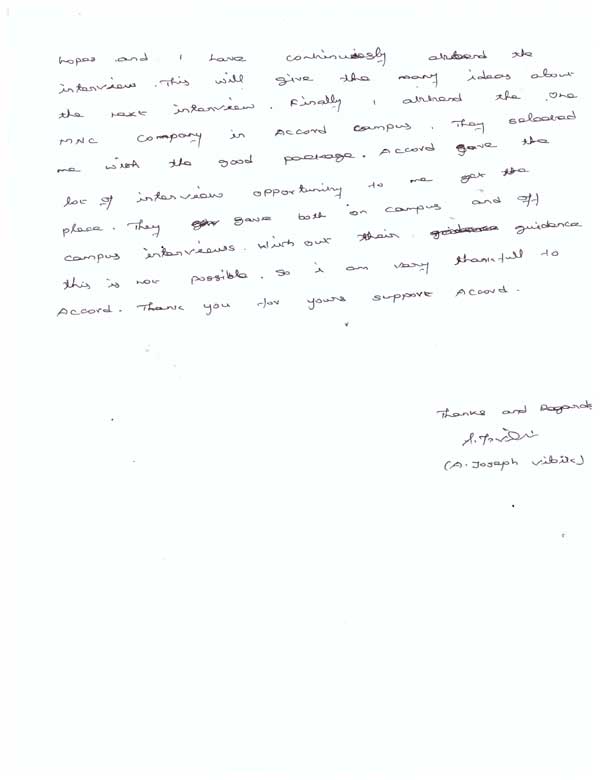 hopes and I have continuiesly attend the
interview. This will give the many ideas about
the next interview. Finally I attend the One
MNC Company in Accord campus. They selected
me with the good package. Accord gave the
lot of interview opportunity to me get the
place. They gave both on campus and off
campus interviews. With out their guidence
this is not possible. So i am very thankfull to
Accord. Thank you for yours support Accord.
Thanks and Regards
(A. Joseph Vibik)